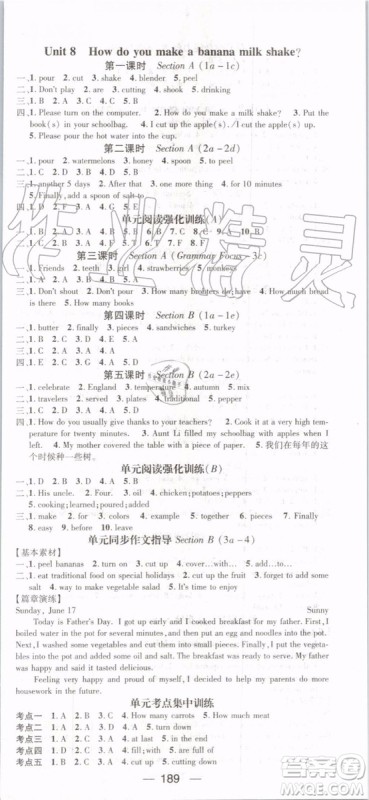 Unit 8 How do you make a banana milk shake?
第一课时 Section A (1a-1c)
一、1. pour 2. cut 3. shake 4. blender 5. peel
二、1. Don't play 2. are 3. to cut 4. on 5. into
三、1. D 2. A 3. C 4. A 5. D
四、1. Please turn on the computer. 2. How do you make a milk shake? 3. My
books are in my schoolbag. 4. I cut up the apple./I cut the apple up.
5. Please pour the hot water into the cup.
第二课时 Section A (2a-2d)
一、1. pour 2. watermelons 3. honey 4. spoon 5. pot
二、1. C 2. D 3. A 4. A 5. D
三、1. another 5 days 2. a piece of 3. one more 4. for 10 minutes
5. Finally, add a spoon of salt to
单元阅读强化训练(A)
1. B 2. A 3. C 4. B 5. C 6. B 7. A 8. C 9. A 10. B
第三课时 Section A (Grammar Focus-3c)
一、1. Friends 2. teeth 3. girl 4. strawberries 5. monkeys
二、1. C 2. D 3. A 4. B 5. D
三、1. Don't shout 2. Don't pour 3. How many brothers do; have 4. How much bread
is there 5. How many books
第四课时 Section B (1a-1e)
一、1. butter 2. finally 3. pieces 4. sandwiches 5. turkey
二、1. B 2. A 3. D 4. B 5. D
第五课时 Section B (2a-2e)
一、1. celebrate 2. England 3. temperature 4. autumn 5. mixed
二、1. travelers 2. served 3. plates 4. traditional 5. to cover
三、1. B 2. D 3. B 4. A 5. D
四、1. How do you usually give thanks to your teachers? 2. Cook it at a very high tem-
perature for twenty minutes. 3. Aunt Li filled my schoolbag with apples when I came
home. 4. My mother covered the table with a piece of paper. 5. 我们在每年的这
个时候种一些树。
单元阅读强化训练(B)
一、1. D 2. B 3. B 4. A 5. C
二、1. His uncle. 2. Four. 3. oil 4. chicken; potatoes; peppers
5. cooking; learned; poured; added
单元同步作文指导 Section B (3a-4)
【基本素材】
一、1. peel bananas 2. cut it into pieces 3. fill up 4. cut up 5. turn on
二、1. eat traditional food on special holidays 2. cut up some vegetables 3. add some
salt 4. eat some bananas to make me feel happy 5. make a fruit salad
【篇章演练】
Sunday, June 17 Sunny
Today is Father's Day. I got up early and I cooked breakfast for my father. First, I
boiled water for some minutes, and then put an egg and noodles into the pot. Then I cut
up some vegetables and cooked for another five minutes. Finally, I put the vegeta-
bles into the pot and added some oil and salt. My father was very happy when he saw
the breakfast.
Feeling very happy, my father had the breakfast. I was very happy, too.
单元考点集中训练
考点一 1. A 2. B 3. C 4. How many carrots 5. How much meat
考点二 1. D 2. A 3. A 4. C 5. A
考点三 1. A 2. A 3. D 4. A 5. B
考点四 1. A 2. A 3. D 4. filled; with 5. are full of
考点五 1. B 2. A 3. A 4. cut up 5. is cutting down
189